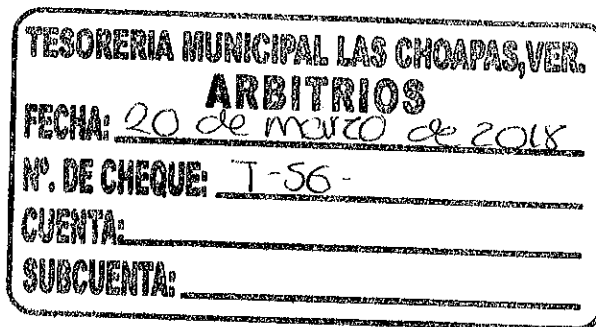 TESORERIA MUNICIPAL LAS CHOAPAS, VER.
ARBITRIOS
FECHA: 20 de marzo de 2018
Nº. DE CHEQUE: T-56-
CUENTA:
SUBCUENTA: